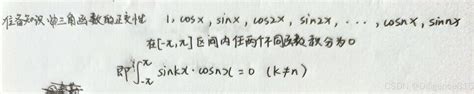 准备知识:三角函数的正交性 1, cosx, sinx, cos2x, sin2x, ···, cosnx, sinnx
在[-π,π]区间内任两个不同函数积分为0
即 ∫_{-π}^{π} sinkx·cosnx = 0 (k≠n)